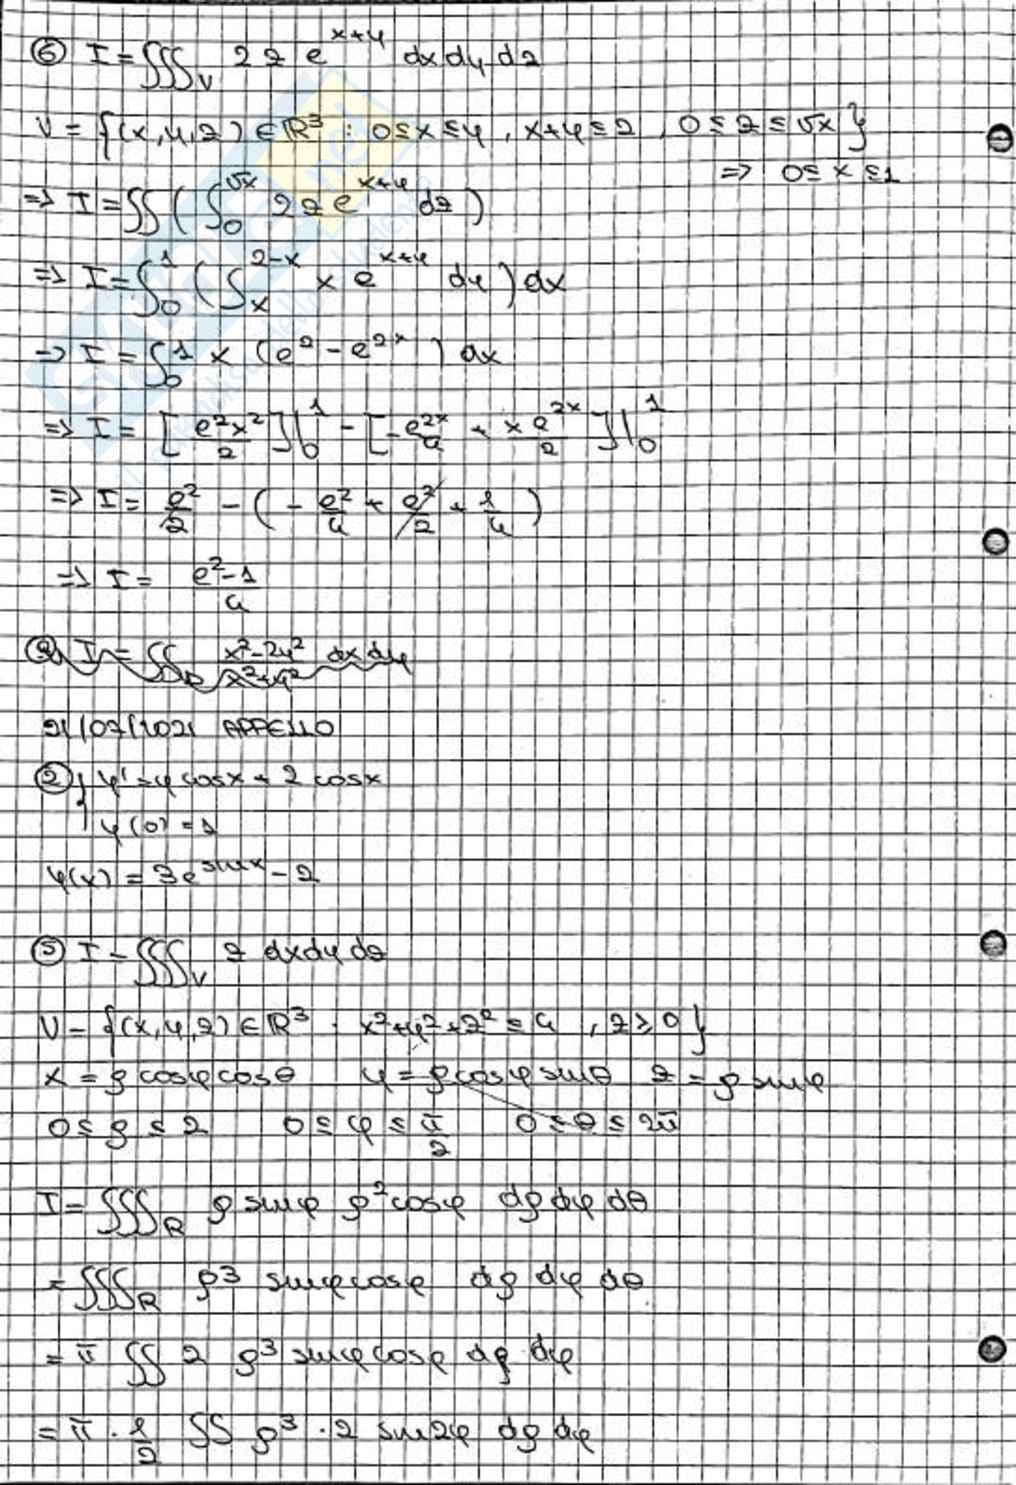 ⑥ I = ∭_V 2z e^{x+y} dx dy dz
V = {(x,y,z) ∈ ℝ³ : 0 ≤ x ≤ y, x+y ≤ 2, 0 ≤ z ≤ √x}
=> 0 ≤ x ≤ 1
=> I = ∬ (∫_0^{√x} 2z e^{x+y} dz)
=> I = ∫_0^1 (∫_x^{2-x} x e^{x+y} dy) dx
=> I = ∫_0^1 x (e² - e^{2x}) dx
=> I = [e²x²/2]|_0^1 - [-e^{2x}/4 + x e^{2x}/2]|_0^1
=> I = e²/2 - (-e²/4 + e²/2 + 1/4)
=> I = (e²-1)/4
I = ∬_D (x²-2y²)/(x²+y²) dx dy
21/07/2021 APPELLO
② { y' = y cosx + 2 cosx
y(0) = 1
y(x) = 3e^{sinx} - 2
⑤ I = ∭_V z dx dy dz
V = {(x,y,z) ∈ ℝ³ : x²+y²+z² ≤ 4, z ≥ 0}
x = ρ cosφ cosθ y = ρ cosφ sinθ z = ρ sinφ
0 ≤ ρ ≤ 2 0 ≤ φ ≤ π/2 0 ≤ θ ≤ 2π
I = ∭_R ρ sinφ ρ² cosφ dρ dφ dθ
= ∭_R ρ³ sinφ cosφ dρ dφ dθ
= π ∬ 2 ρ³ sinφ cosφ dρ dφ
= π · 1/2 ∬ ρ³ · 2 sin2φ dρ dφ